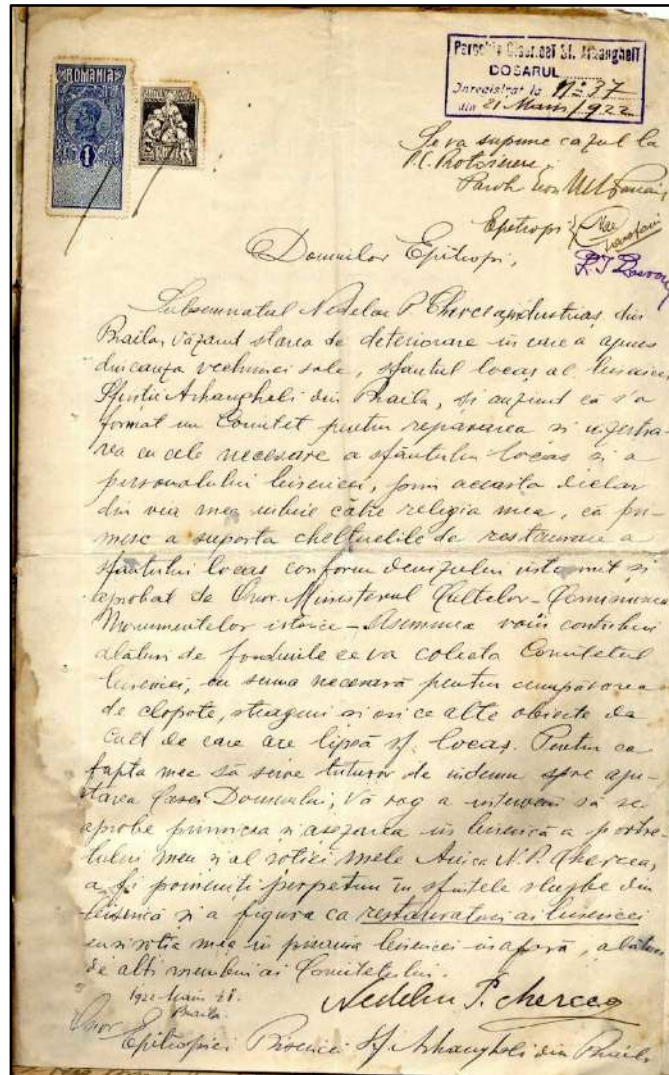 ROMANIA
1
Parochia Bisericei Sf. Arhangheli
DOSARUL
Inregistrat la No 37
din 21 Mars 1922
Se va supune cazul la
P.C. Protoiereu.
Paroh Econ
Epitropi
Domnilor Epitropi,
Subsemnatul Nedelcu P. Chercea, industriaș, din
Braila, văzand starea de deteriorare in care a ajuns
din cauza vechimei sale, sfântul locaș al bisericei
Sfinții Arhangheli din Braila, și auzind că s'a
format un Comitet pentru repararea si inzestra-
rea cu cele necesare a sfântului locaș si a
personalului bisericei, prin aceasta declar
din via mea iubire către religia mea, că pri-
mesc a suporta cheltuelile de restaurare a
sfântului locaș conform devizului întocmit și
aprobat de Onor. Ministerul Cultelor - Comisiunea
Monumentelor istorice - Asemenea voiu contribui
alături de fondurile ce va colecta Comitetul
bisericei, cu suma necesară pentru cumpărarea
de clopote, și orice alte obiecte de
cult de care are lipsă sf. locaș. Pentru ca
fapta mea să serve tuturor de indemn spre aju-
tarea Casei Domnului, Vă rog a interveni să se
aprobe primirea și așezarea in biserică a portre-
tului meu și al soției mele Anica N. P. Chercea,
a fi pomeniți perpetuu în sfintele slujbe din
biserică și a figura ca restauratori ai bisericei
cu soția mea in bisericei in afară, alături
de alti membri ai Comitetului.
Braila.
Nedelcu P. Chercea
Onor Epitropiei Bisericei Sf Arhangheli din Braila